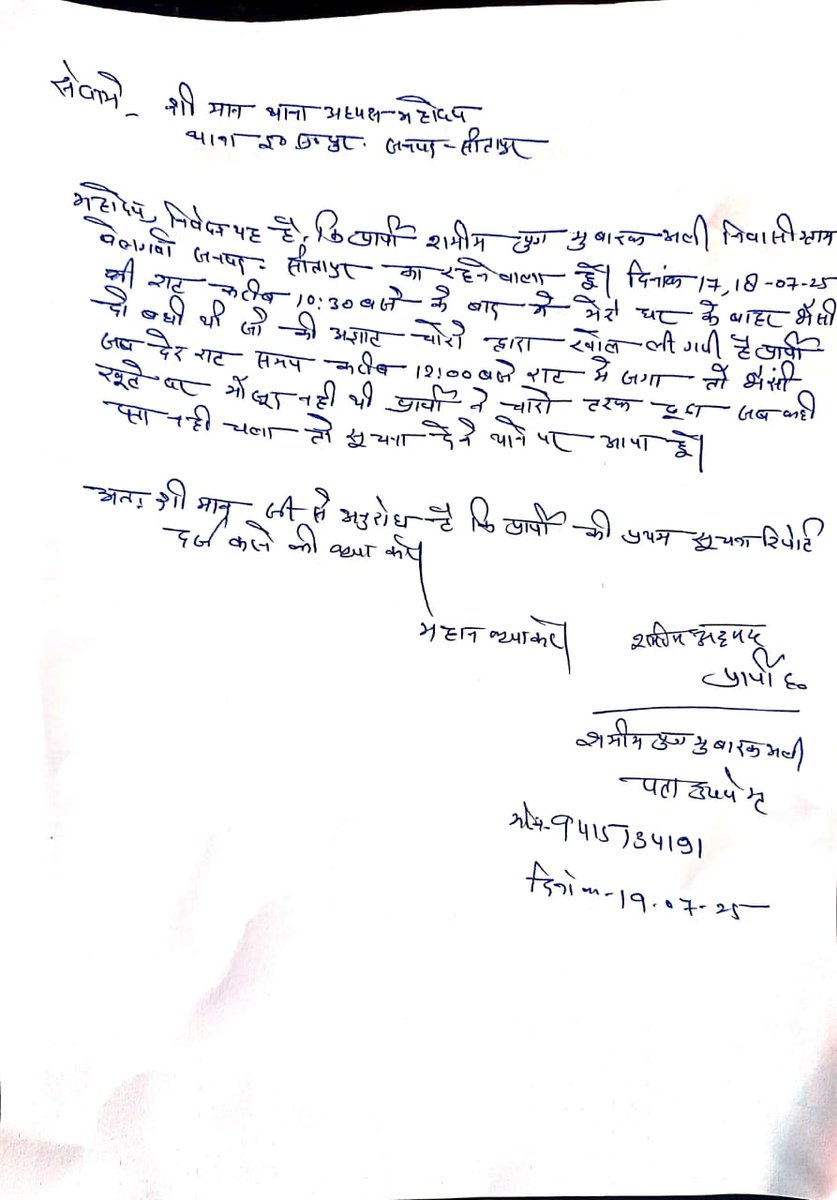 सेवामे - श्री मान थाना अध्यक्ष महोदय
थाना इ० सु० पुर. जनपद - सीतापुर
महोदय, निवेदन यह है, कि प्रार्थी शमीम पुत्र मुबारक अली निवासी ग्राम
वेलगवां जनपद - सीतापुर का रहने वाला हूँ। दिनांक 17,18-07-25
की रात करीब 10:30 बजे के बाद मे मेरे घर के बाहर भैंसी
दो बधी थी जो की अज्ञात चोरो द्वारा खोल ली गयी है प्रार्थी
जब देर रात समय करीब 12:00 बजे रात मे जगा तो भैंसी
खूटे पर मौजूद नही थी प्रार्थी ने चारो तरफ ढूढा जब कही
पता नही चला तो सूचना देने थाने पर आया हूँ।
अतः श्री मान जी से अनुरोध है कि प्रार्थी की प्रथम सूचना रिपोर्ट
दर्ज करने की कृपा करें।
महान कृपा करें।
शमीम अहमद
प्रार्थी ह०
शमीम पुत्र मुबारक अली
पता उपर्युक्त
मो०न०-9415734191
दिनांक-19-07-25